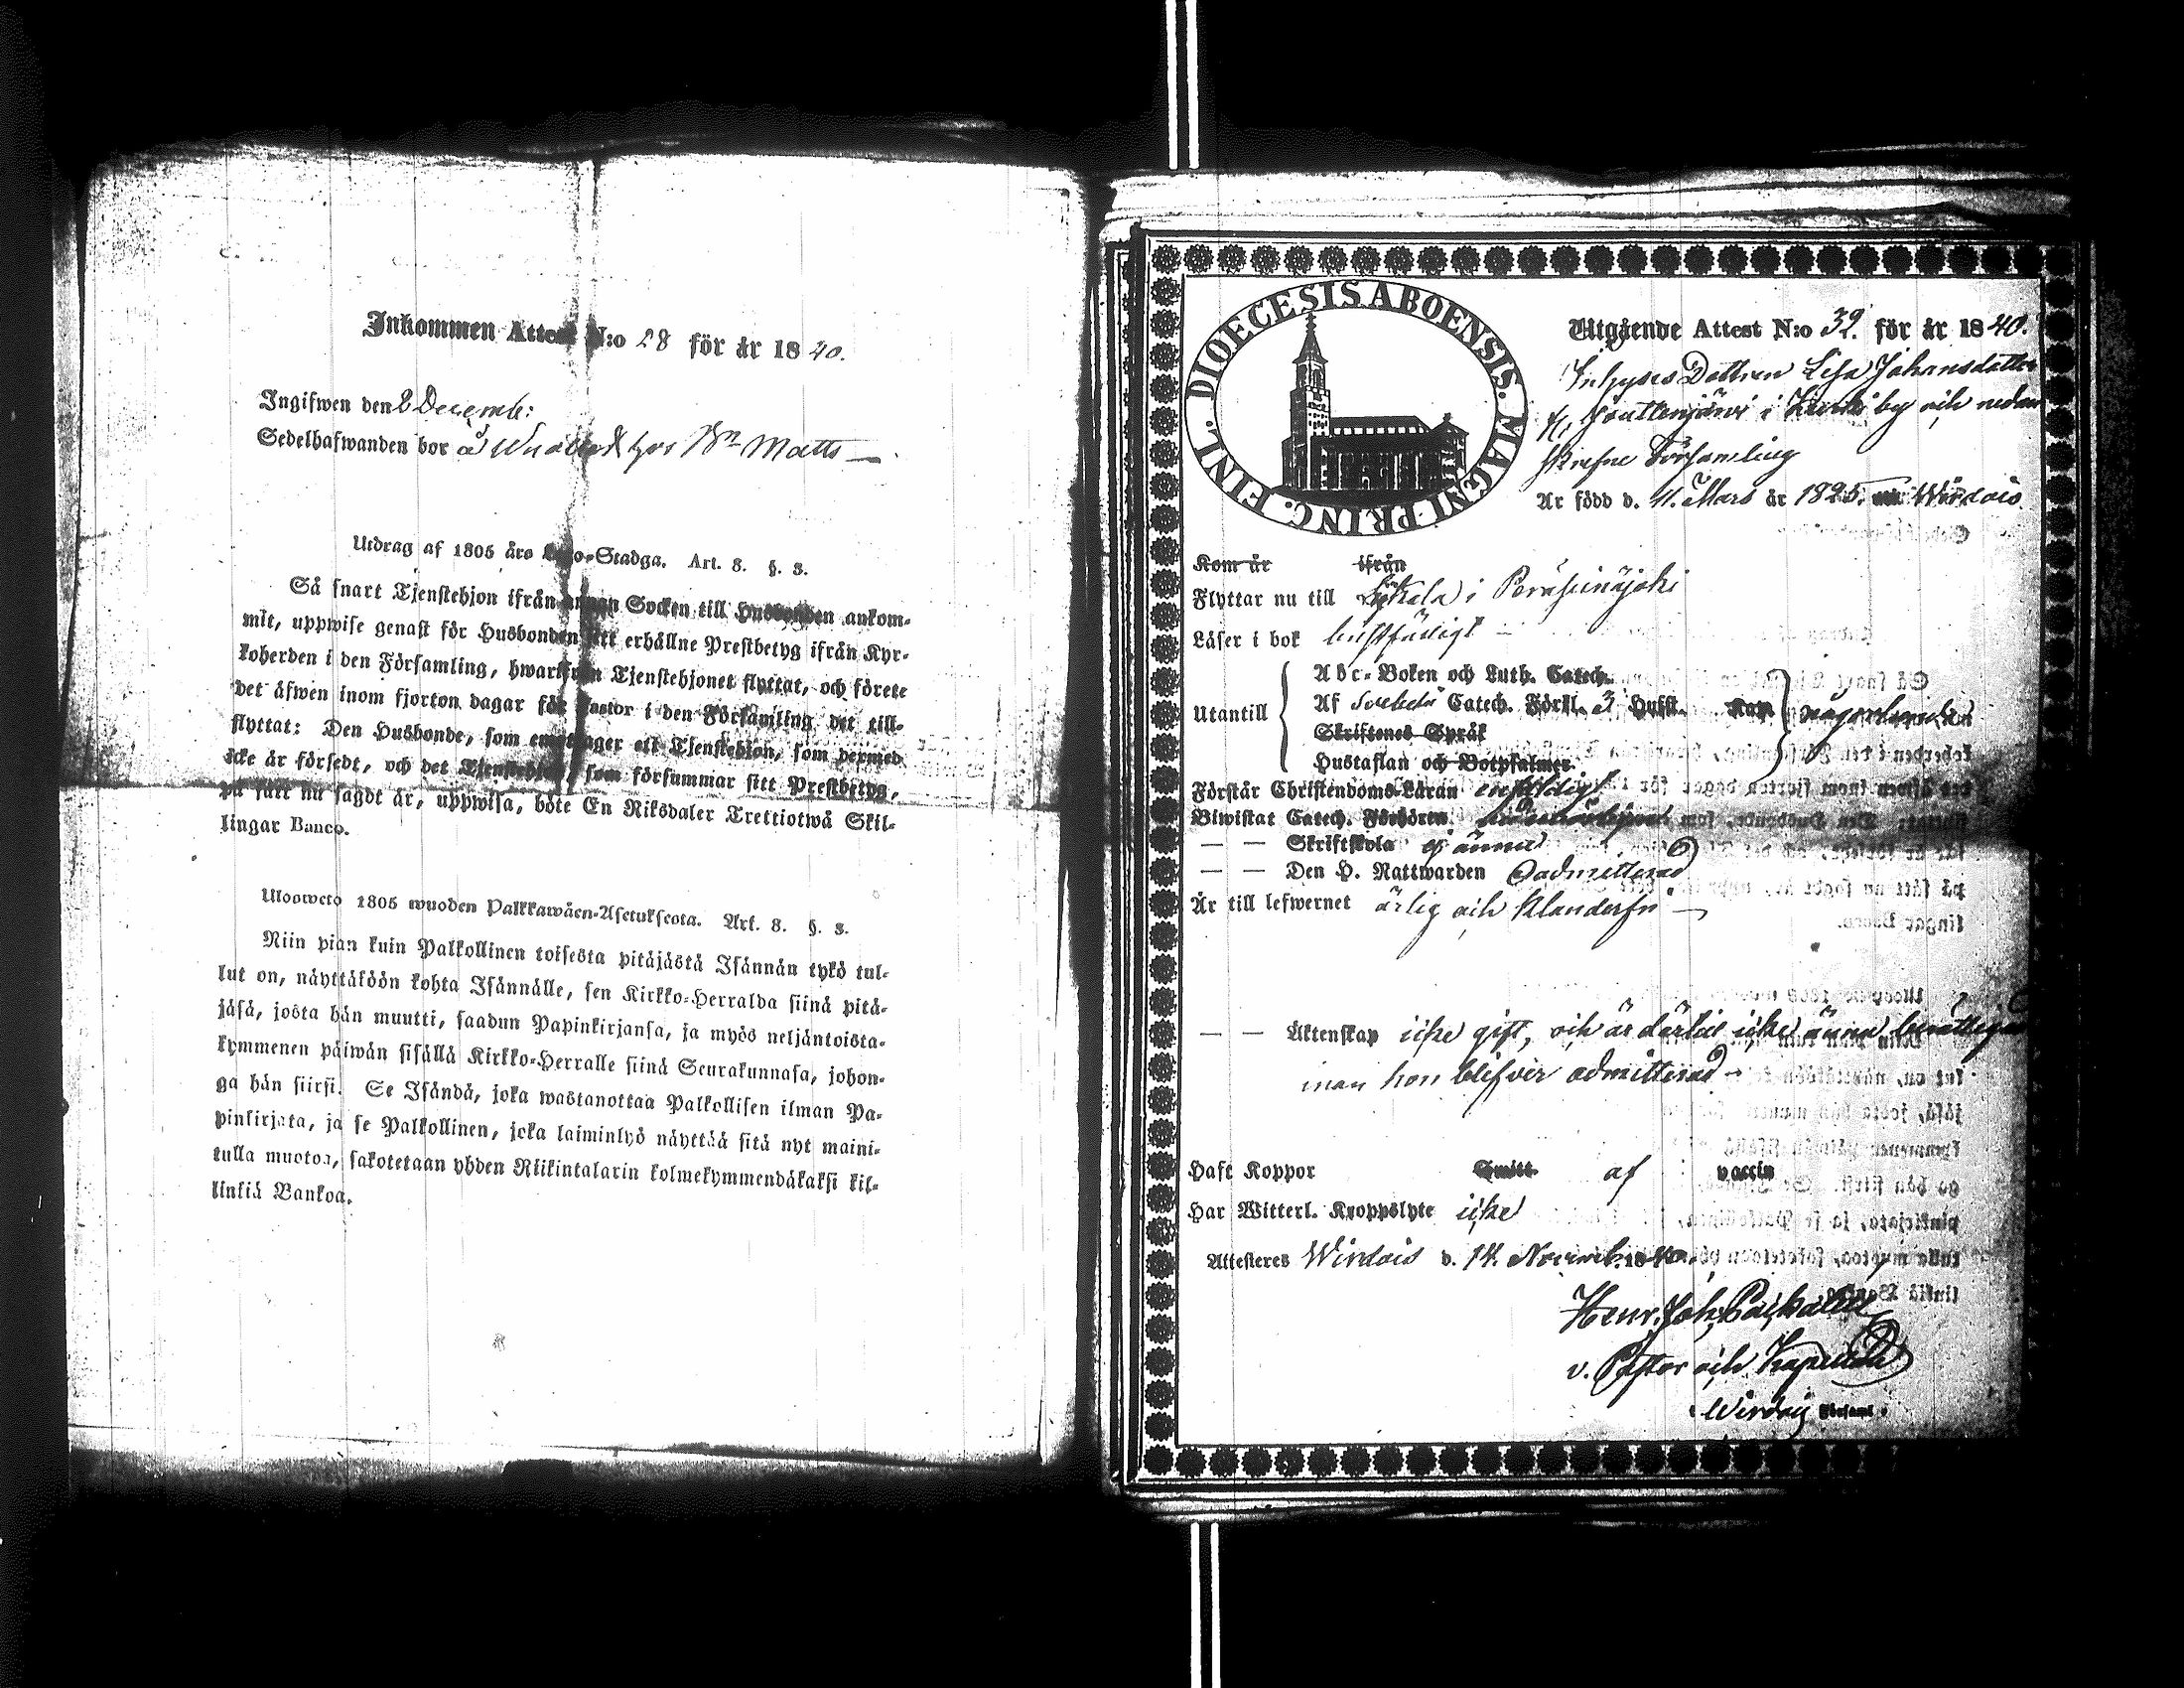 Inkommen Attest N:o 28 för år 1840.
Ingifwen den 8 Decemb:
Sedelhafwanden bor å hos Bn Matts —
Utdrag af 1805 års Lego-Stadga. Art. 8. §. 3.
Så snart Tjenstehjon ifrån annan Socken till Husbonden ankom-
mit, uppwise genast för Husbonden sitt erhållne Prestbetyg ifrån Kyr-
koherden i den Församling, hwarifrån Tjenstehjonet flyttat, och förete
det äfwen inom fjorton dagar för Pastor i den Församling det till-
flyttat: Den Husbonde, som emottager ett Tjenstehjon, som dermed
icke är försedt, och det Tjenstehjon, som försummar sitt Prestbetyg,
på sätt nu sagdt är, uppwisa, böte En Riksdaler Trettiotwå Skil-
lingar Banco.
Ulosweto 1805 wuoden Palkkawäen-Asetuksesta. Art. 8. §. 3.
Niin pian kuin Palkollinen toisesta pitäjästä Isännän tykö tul-
lut on, näyttäköön kohta Isännälle, sen Kirkko-Herralda siinä pitä-
jäsä, josta hän muutti, saadun Papinkirjansa, ja myös neljäntoista-
kymmenen päiwän sisällä Kirkko-Herralle siinä Seurakunnasa, johon-
ga hän siirsi. Se Isändä, joka wastanottaa Palkollisen ilman Pa-
pinkirjata, ja se Palkollinen, joka laiminlyö näyttää sitä nyt maini-
tulla muotoa, sakotetaan yhden Riikintalarin kolmekymmendäkaksi kil-
linkiä Bankoa.
DIOECESIS ABOENSIS. MAGNI PRINC. FINL.
Utgående Attest N:o 39. för år 1840.
Inhyses Dottren Lisa Johansdotter
i by och nedan
skrefne Församling
Är född d. 11. Mars år 1825. Wirdois.
Kom år ifrån
Flyttar nu till i Peräseinäjoki
Läser i bok
Utantill
A b c-Boken och Luth. Catech.
Af Svebelii Catech. Förkl. 3 Hufst. Kap
Skriftenes Språk
Hustaflan och Botpsalmer.
Förstår Christendoms-Läran enfaldigt
Biwistat Catech. Förhören
— — Skriftskola ej ännu
— — Den H. Nattwarden Oadmitterad
Är till lefwernet ärlig och klanderfri —
— — Äktenskap icke gift, och är dertil icke ännu berättigad
innan hon blifvir admitterad —
Haft Koppor Smitt af vaccin
Har Witterl. Kroppslyte icke
Attesteres Wirdois d. 14. Novemb. 1840.
Henr. Joh.
v. Pastor och Kapellan
i Wirdois Församl.